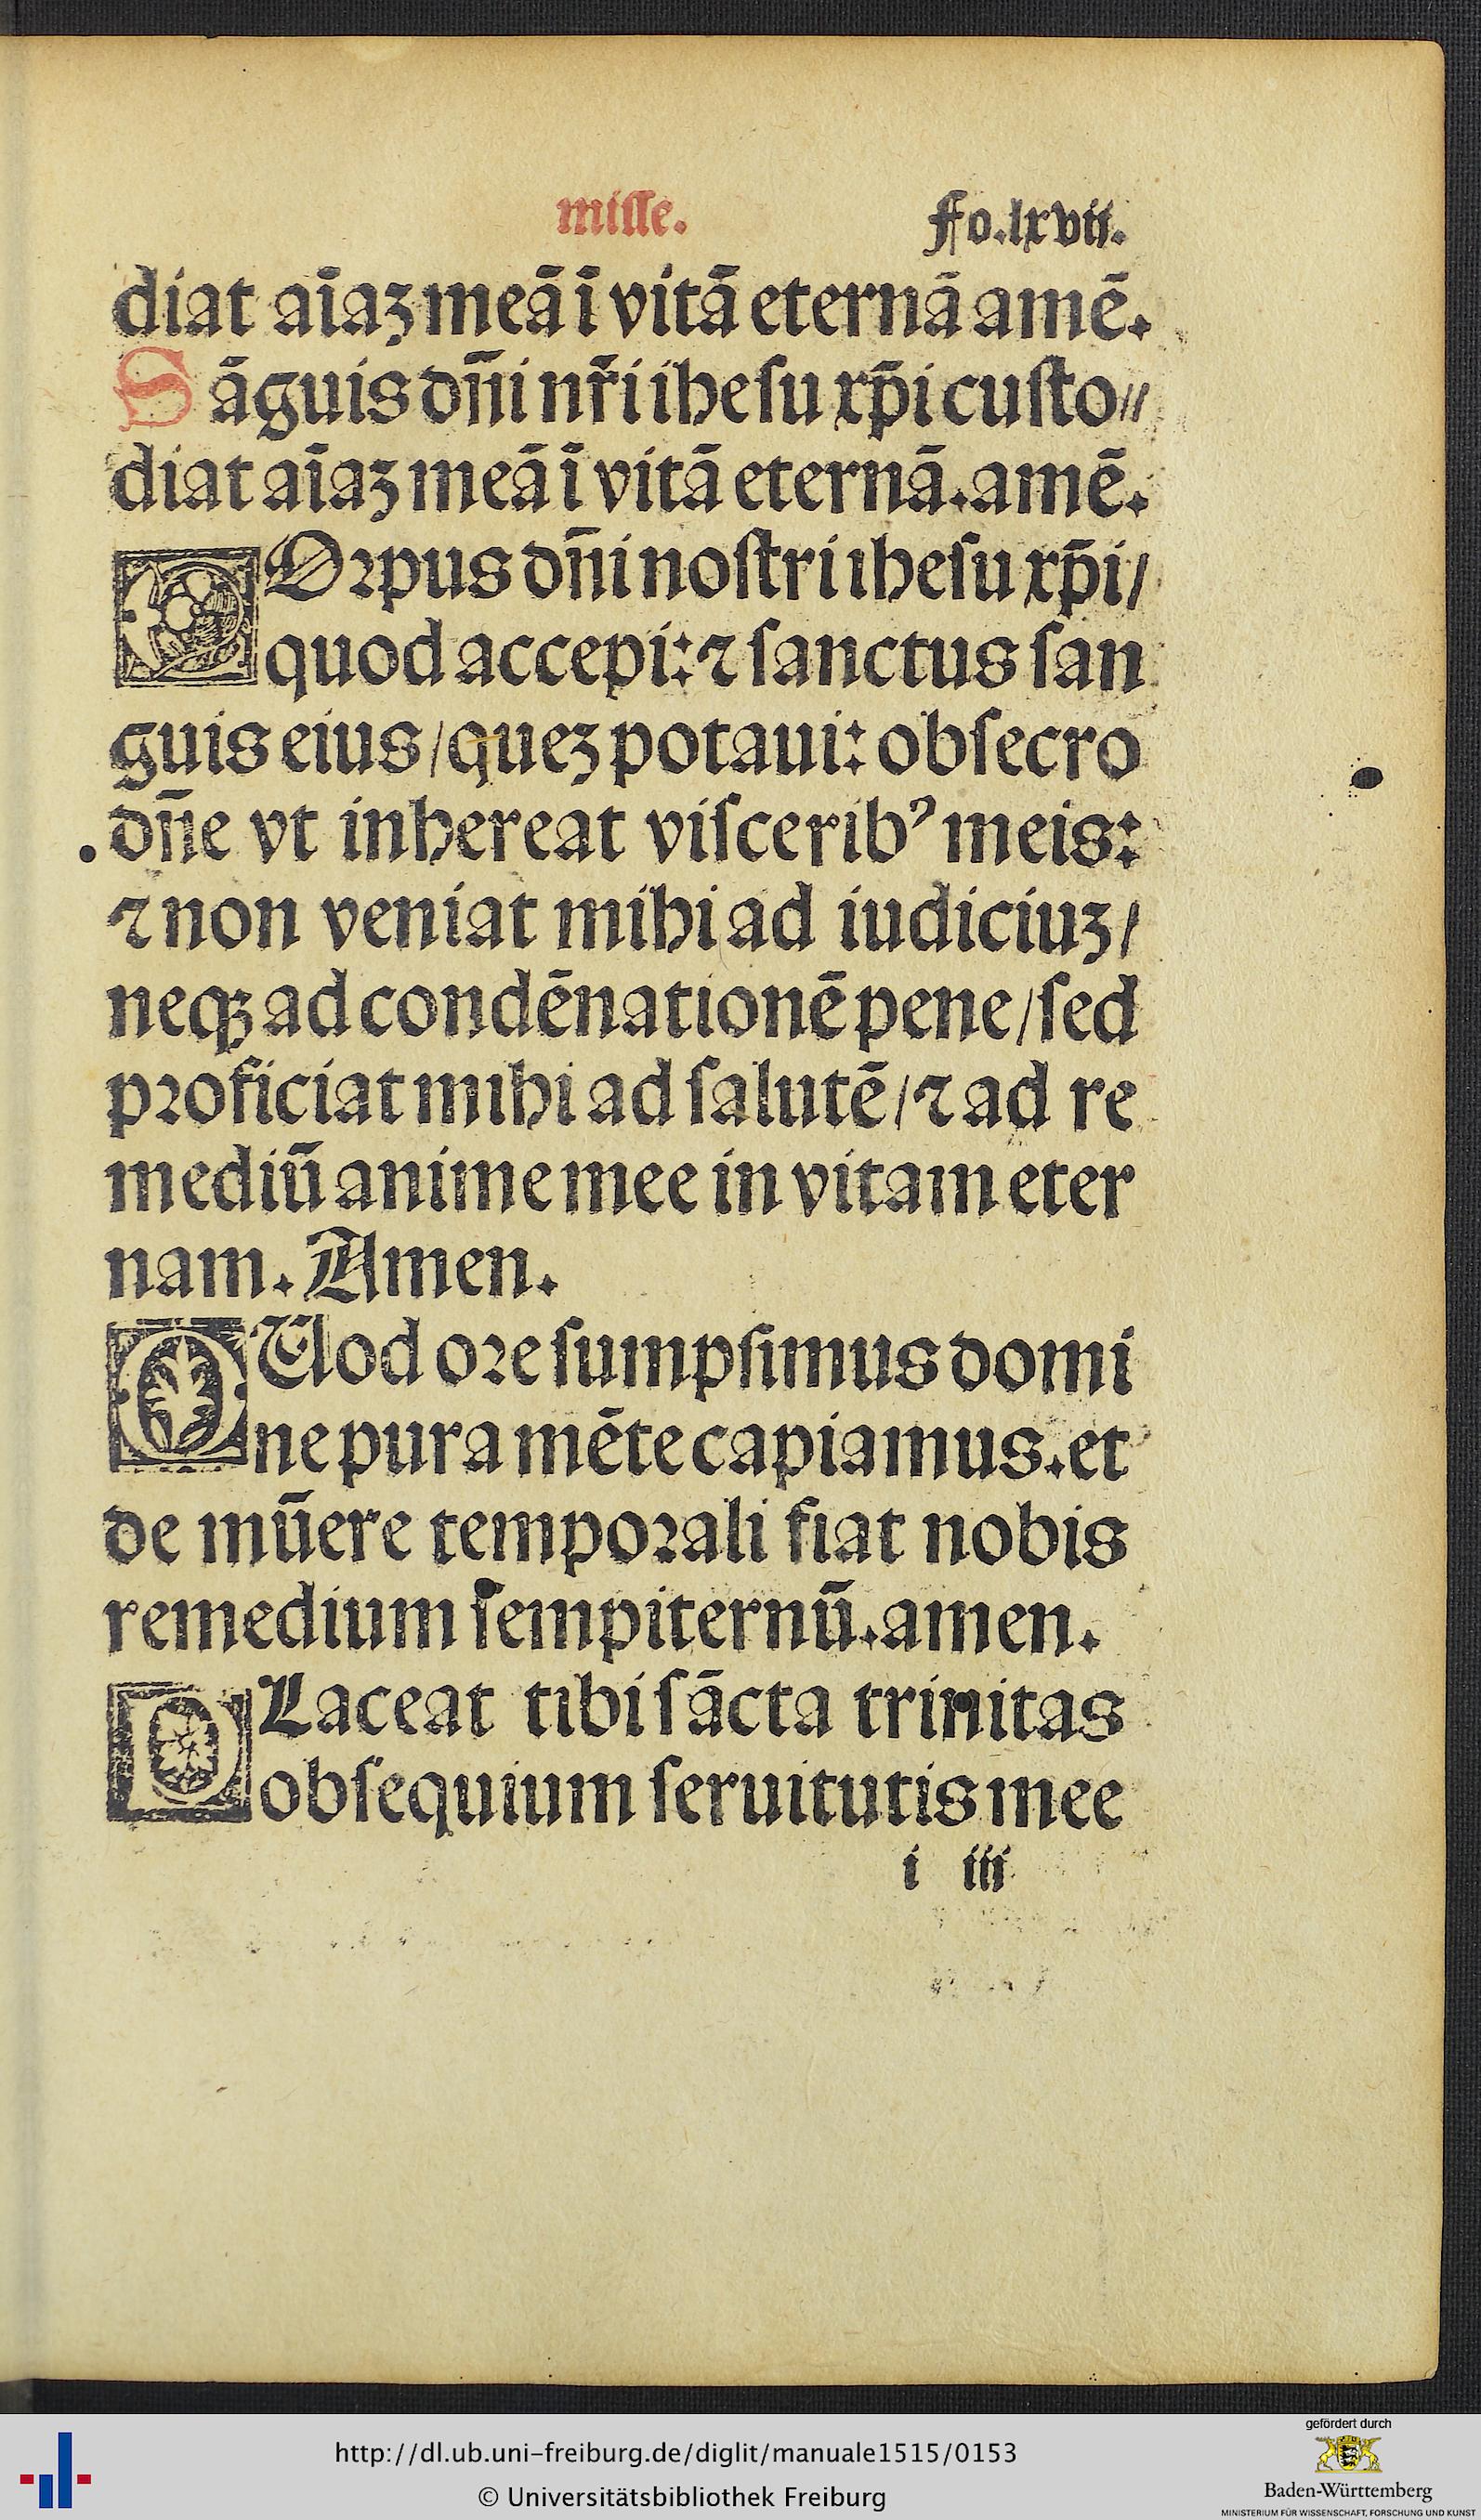 miſſe. Fo.lxvii.
diat aīaꝫ meā ī vitā eternā amē.
Sāguis dn̄i nr̄i iheſu xp̄i cuſto⸗
diat aīaꝫ meā ī vitā eternā. amē.
COꝛpus dn̄i noſtri iheſu xp̄i/
quod accepi: ⁊ ſanctus ſan
guis eius/ queꝫ potaui: obſecro
dn̄e vt inhereat viſceribꝰ meis:
⁊ non veniat mihi ad iudiciuꝫ/
neqꝫ ad condēnationē pene/ ſed
pꝛoficiat mihi ad ſalutē/ ⁊ ad re
mediū anime mee in vitam eter
nam. Amen.
QUod oꝛe ſumpſimus domi
ne pura mēte capiamus. et
de mūere tempoꝛali fiat nobis
remedium ſempiternū. amen.
PLaceat tibi ſācta trinitas
obſequium ſeruitutis mee
i iii
http://dl.ub.uni-freiburg.de/diglit/manuale1515/0153
© Universitätsbibliothek Freiburg
gefördert durch
Baden-Württemberg
MINISTERIUM FÜR WISSENSCHAFT, FORSCHUNG UND KUNST